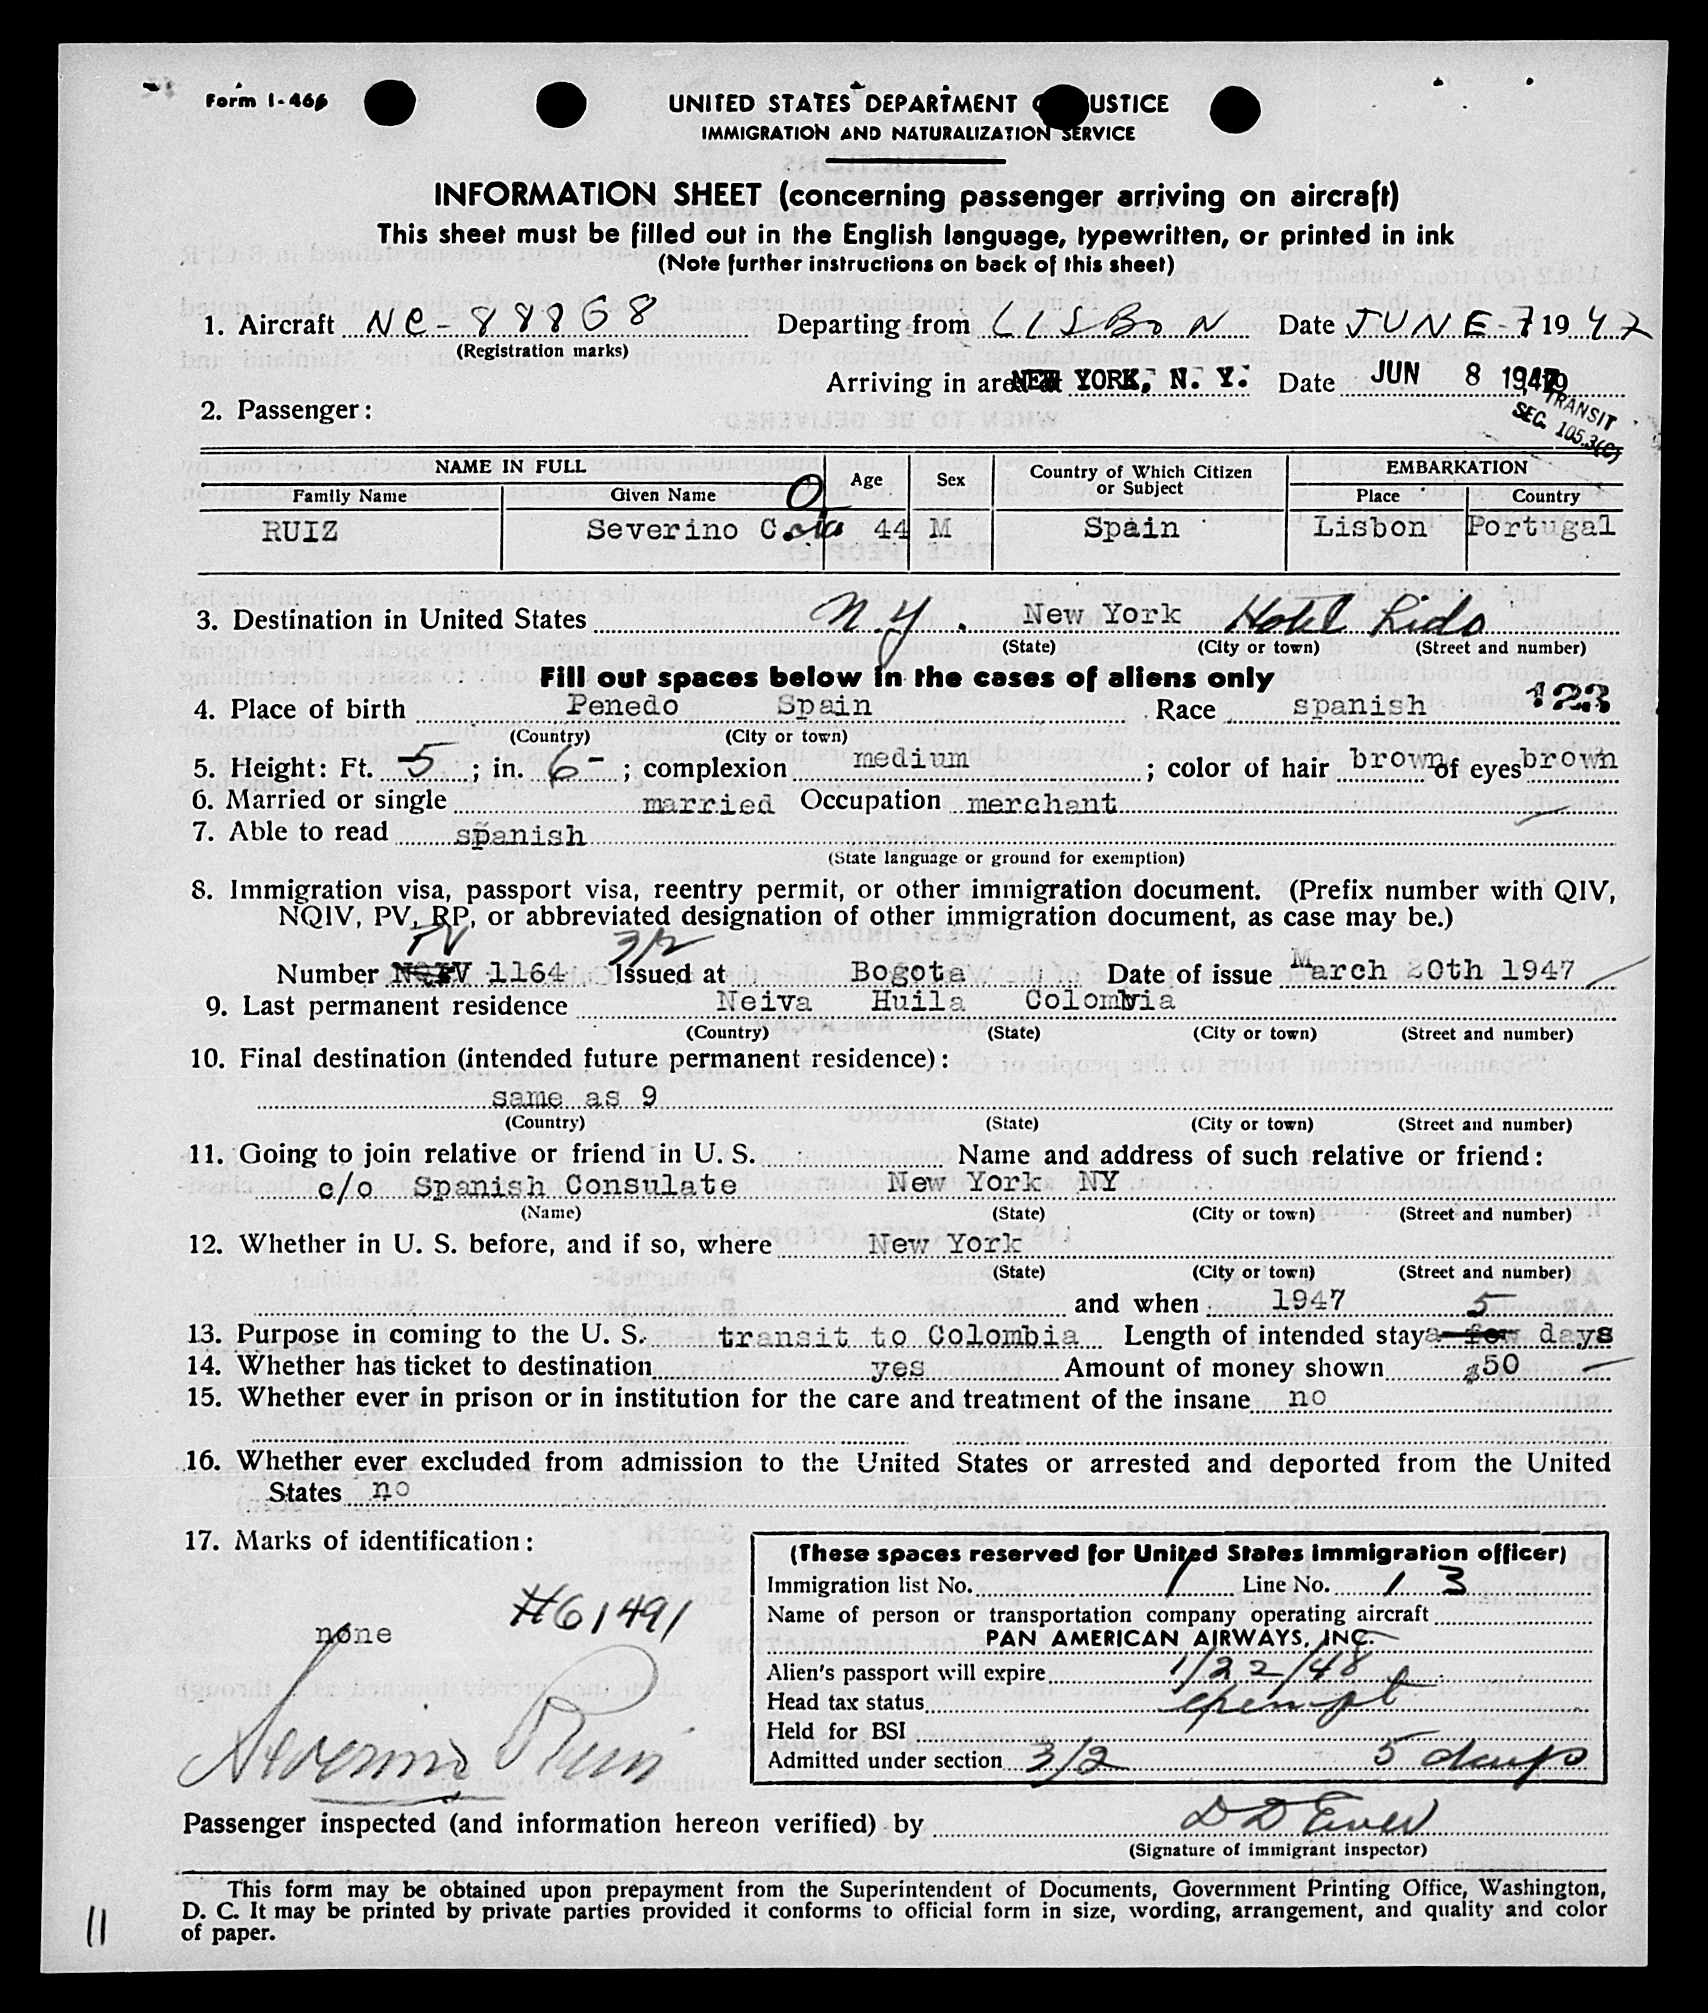 Form I-466
UNITED STATES DEPARTMENT OF JUSTICE
IMMIGRATION AND NATURALIZATION SERVICE
INFORMATION SHEET (concerning passenger arriving on aircraft)
This sheet must be filled out in the English language, typewritten, or printed in ink
(Note further instructions on back of this sheet)
1. Aircraft NC-88868 Departing from LISBON Date JUNE-7 1947
(Registration marks)
Arriving in area at NEW YORK, N. Y. Date JUN 8 1947 19
TRANSIT
SEC. 105.3(C)
2. Passenger:
NAME IN FULL Age Sex Country of Which Citizen or Subject EMBARKATION
Family Name Given Name Place Country
RUIZ Severino C. 44 M Spain Lisbon Portugal
3. Destination in United States N.Y. New York Hotel Lido
(State) (City or town) (Street and number)
Fill out spaces below in the cases of aliens only
4. Place of birth Penedo Spain Race spanish 123
(Country) (City or town)
5. Height: Ft. 5 ; in. 6- ; complexion medium ; color of hair brown of eyes brown
6. Married or single married Occupation merchant
7. Able to read spanish
(State language or ground for exemption)
8. Immigration visa, passport visa, reentry permit, or other immigration document. (Prefix number with QIV,
NQIV, PV, RP, or abbreviated designation of other immigration document, as case may be.)
TV 3/2
Number NQIV 1164 Issued at Bogota Date of issue March 20th 1947
9. Last permanent residence Neiva Huila Colombia
(Country) (State) (City or town) (Street and number)
10. Final destination (intended future permanent residence):
same as 9
(Country) (State) (City or town) (Street and number)
11. Going to join relative or friend in U. S. Name and address of such relative or friend:
c/o Spanish Consulate New York NY
(Name) (State) (City or town) (Street and number)
12. Whether in U. S. before, and if so, where New York
(State) (City or town) (Street and number)
and when 1947
5
13. Purpose in coming to the U. S. transit to Colombia Length of intended stay a few days
14. Whether has ticket to destination yes Amount of money shown $50
15. Whether ever in prison or in institution for the care and treatment of the insane no
16. Whether ever excluded from admission to the United States or arrested and deported from the United
States no
17. Marks of identification:
#61491
none
Severino Ruiz
(These spaces reserved for United States immigration officer)
Immigration list No. 1 Line No. 13
Name of person or transportation company operating aircraft
PAN AMERICAN AIRWAYS, INC.
Alien's passport will expire 1/22/48
Head tax status exempt
Held for BSI
Admitted under section 3/2 5 days
Passenger inspected (and information hereon verified) by
(Signature of immigrant inspector)
This form may be obtained upon prepayment from the Superintendent of Documents, Government Printing Office, Washington,
D. C. It may be printed by private parties provided it conforms to official form in size, wording, arrangement, and quality and color
of paper.
11